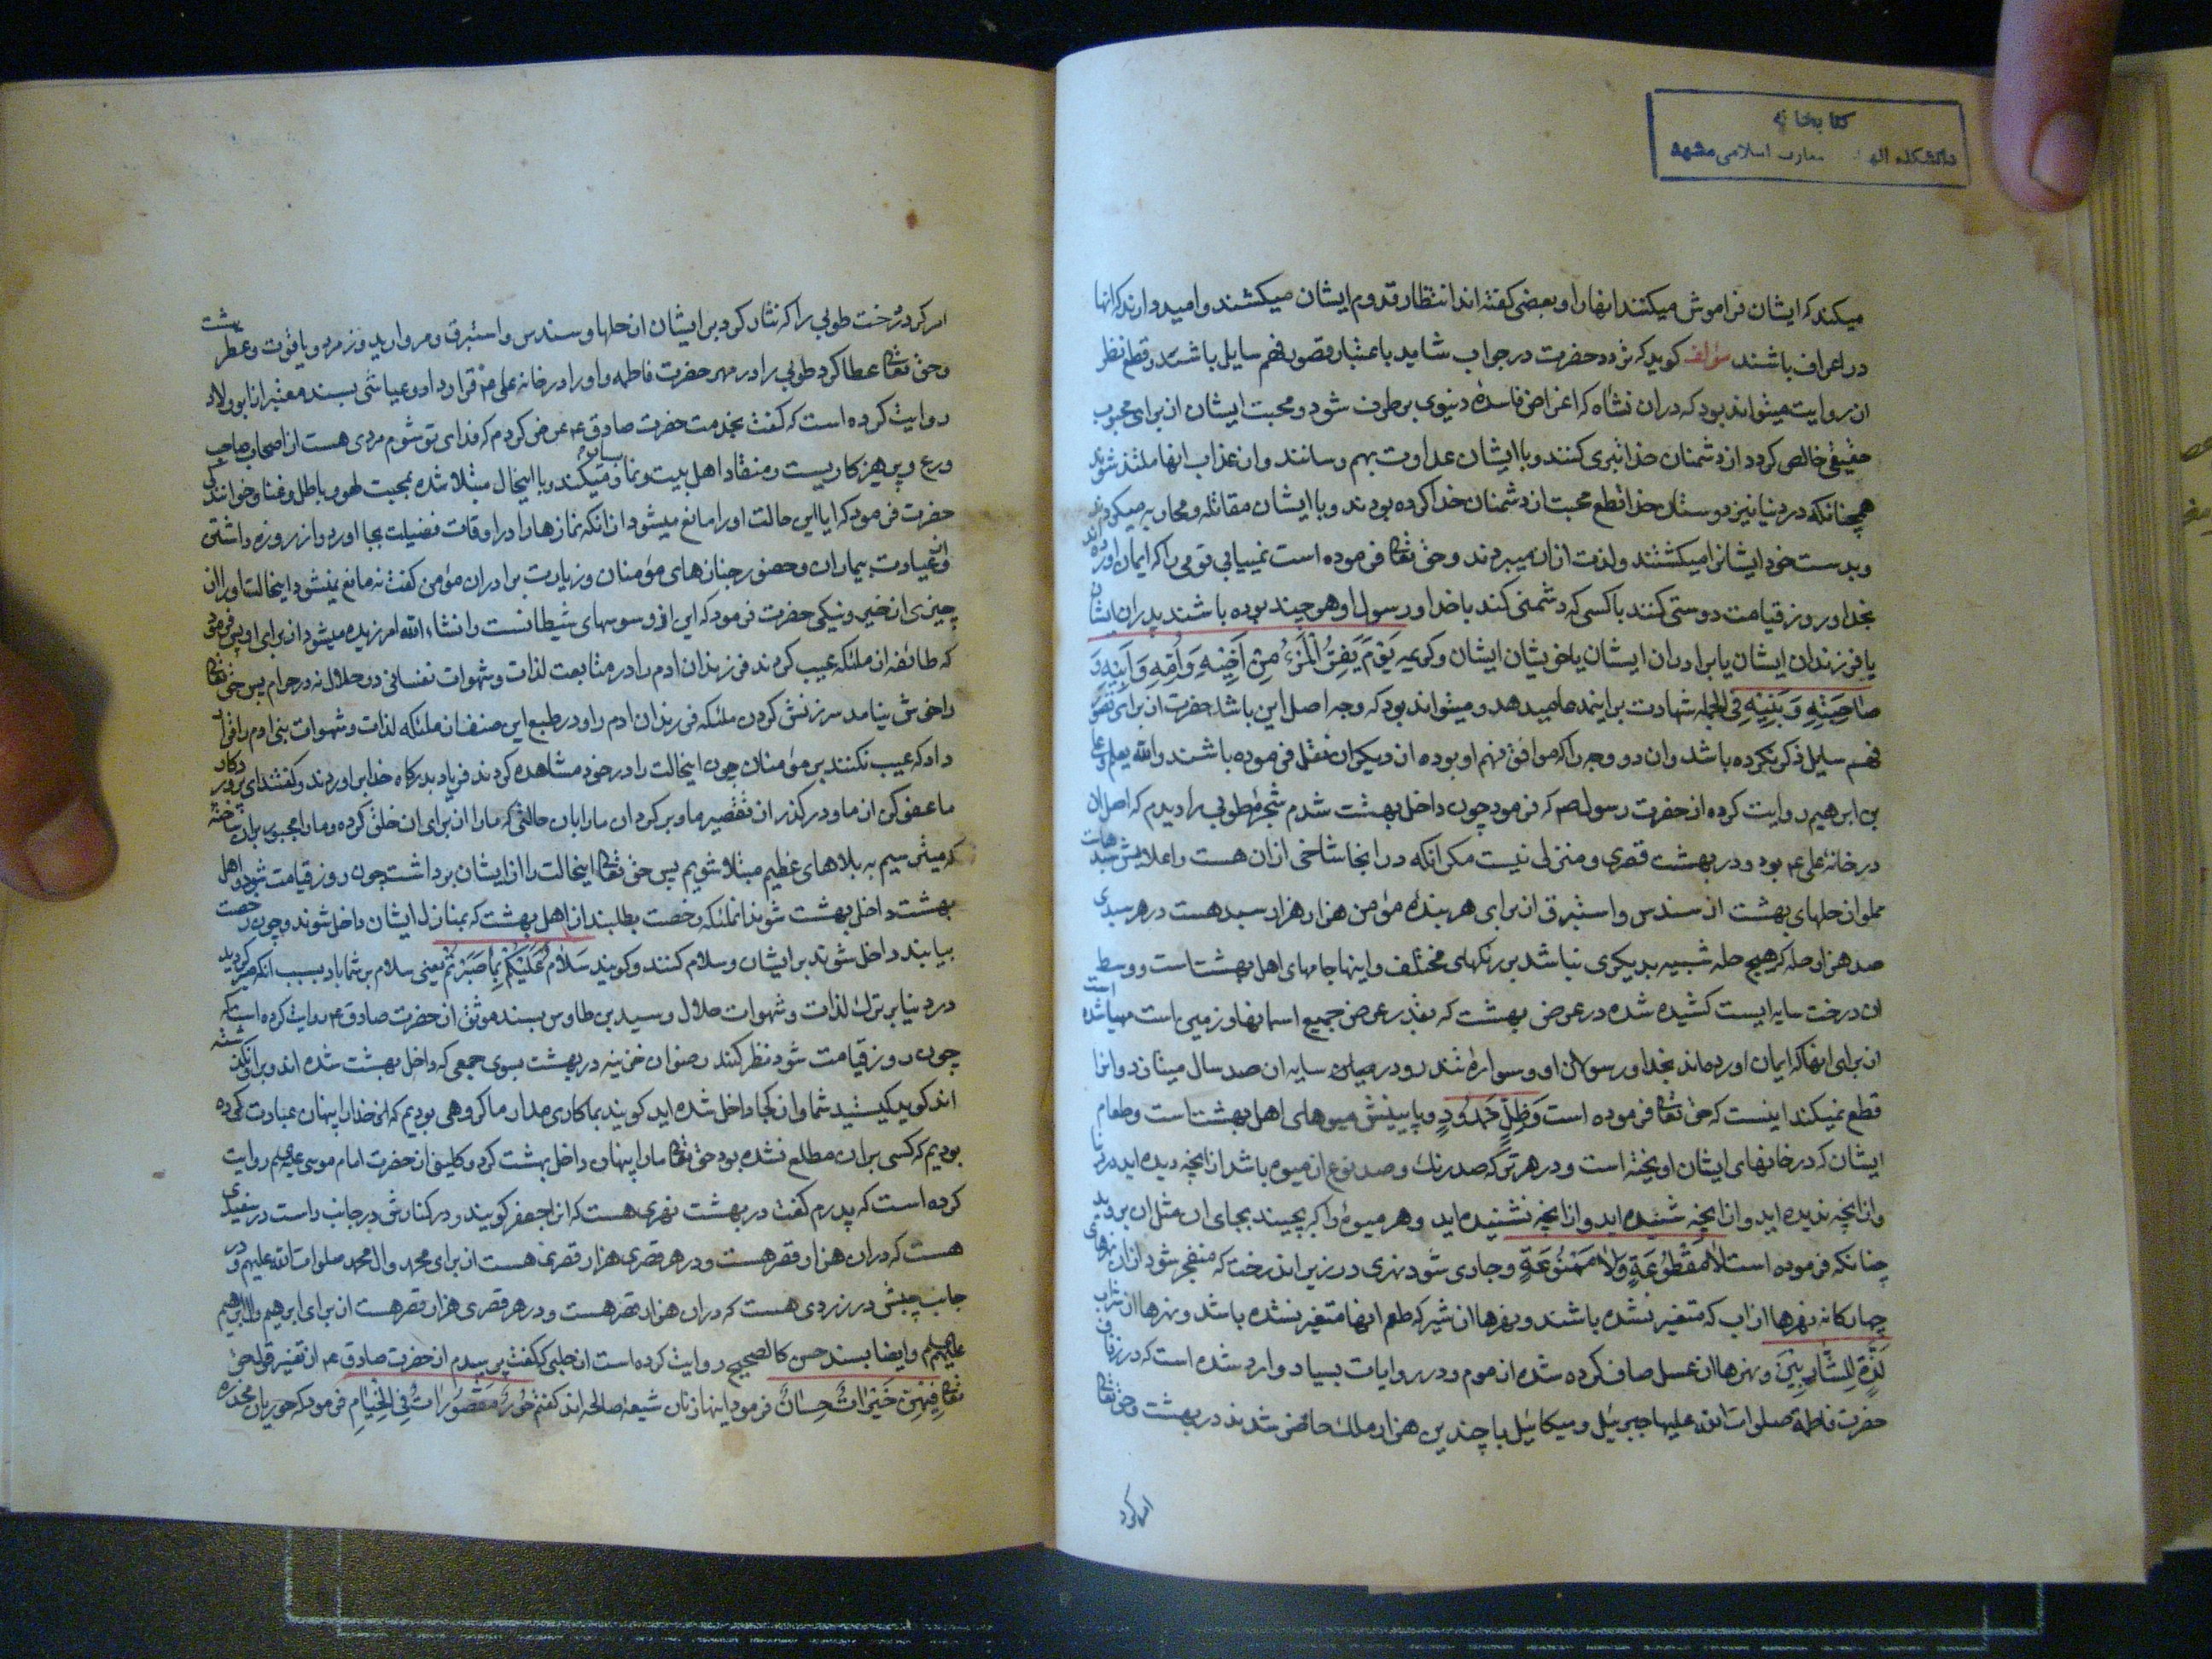 کتابخانه
دانشکده الهیات معارف اسلامی مشهد
میکند که ایشان فراموش میکنند انها را و بعضی گفته اند انتظار قدوم ایشان میکشند و امید دارند که انها
در اعراف باشند مؤلف کوید که تردد حضرت در جواب شاید باعتبار قصور فهم سایل باشد و قطع نظر
ان روایت میتواند بود که دران نشاه که اغراض فاسدهٔ دنیوی برطرف شود و محبت ایشان از برای محبوب
حقیقی خالص کردد از دشمنان خدا تبری کنند و با ایشان عداوت بهم رسانند و از عذاب انها ملتذ شوند
همچنانکه در دنیا نیز دوستان خدا قطع محبت از دشمنان خدا کرده بودند و با ایشان مقاتله و محاربه میکردند
و بدست خود ایشانرا میکشتند و لذت ازان میبردند و حق تعالی فرموده است نمییابی قومی را که ایمان اورده اند
بخدا و روز قیامت دوستی کنند با کسی که دشمنی کند با خدا و رسول او هر چند بوده باشند پدران ایشان
یا فرزندان ایشان یا برادران ایشان یا خویشان ایشان و کریمه یَوْمَ یَفِرُّ الْمَرْءُ مِنْ اَخِیْهِ وَ اُمِّهِ وَ اَبِیْهِ وَ
صَاحِبَتِهِ وَ بَنِیْهِ فی الجمله شهادت بر اینمدعا میدهد و میتواند بود که وجه اصل این باشد حضرت از برای قصور
فهم سایل ذکر نکرده باشد و ان دو وجه را که موافق فهم او بوده از دیکران نقل فرموده باشند والله یعلم و علی
بن ابرهیم روایت کرده از حضرت رسول ص که فرمود چون داخل بهشت شدم شجرهٔ طوبی را دیدم که اصل ان
در خانهٔ علی ع بود و در بهشت قصری و منزلی نیست مکر انکه در انجا شاخی ازان هست و اعلایش سبدهاست
مملو از حلهای بهشت از سندس و استبرق از برای هر بندهٔ مؤمن هزار هزار سبد هست در هر سبدی
صد هزار حله که هیچ حله شبیه بدیکری نباشد بر رنکهای مختلف و اینها جامهای اهل بهشتست و وسط
ان درخت سایه ایست کشیده شده در عرض بهشت که بقدر عرض جمیع اسمانها و زمین است مهیا شده است
از برای انها که ایمان اورده اند بخدا و رسولان او و سوارهٔ تند رو در میان سایه ان صد سال میتازد و انرا
قطع نمیکند اینست که حق تعالی فرموده است وَ ظِلٍّ مَمْدُودٍ و پایینش میوهای اهل بهشتست و طعام
ایشان که در خانهای ایشان اویخته است و در هر ترکه صد رنک و صد نوع از میوه باشد از انچه دیده اید در دنیا
و از انچه ندیده اید و از انچه شنیده اید و از انچه نشنیده اید و هر میوه را که بچیند بجای ان مثل ان بروید
چنانکه فرموده است لاٰ مَقْطُوْعَةٍ وَ لاٰ مَمْنُوعَةٍ و جاری شود نهری در زیر اندرخت که منفجر شود ازان نهرهای
چهار کانه نهرها از اب که متغیر نشده باشند و نهرها از شیر که طعم انها متغیر نشده باشد و نهرها از شراب
لَذَّةٍ لِلشَّارِبِیْنَ و نهرها از عسل صاف کرده شده از موم و در روایات بسیار وارد شده است که در زفاف
حضرت فاطمه صلوات الله علیها جبرئیل و میکائیل با چندین هزار ملک حاضر شدند در بهشت و حق تعالی
امر کرد
امر کرد درخت طوبی را که نثار کرد بر ایشان از حلها و سندس و استبرق و مروارید و زمرد و یاقوت و عطر بهشت
و حق تعالی عطا کرد طوبی را در مهر حضرت فاطمه و او را در خانه علی ع قرار داد و عیاشی بسند معتبر از ابو ولاد
روایت کرده است که گفت بخدمت حضرت صادق ع عرض کردم که فدای تو شوم مردی هست از اصحاب صاحب
ورع و پرهیزکاریست و منقاد اهل بیت و نماز بسیار میکند و با اینحال مبتلا شده بمحبت لهو و باطل و غنا و خوانندکی
حضرت فرمود که ایا این حالت او را مانع میشود از انکه نمازها را در اوقات فضیلت بجا اورد و از روزه داشتن
و از عیادت بیماران و حضور جنازهای مؤمنان و زیارت برادران مؤمن گفت نه مانع نمیشود اینحالت او را از
چیزی از خیر و نیکی حضرت فرمود که این از وسوسهای شیطانست و انشاء الله امرزیده میشود از برای او پس فرمود
که طائفه از ملئکه عیب کردند فرزندان ادم را در متابعت لذات و شهوات نفسانی در حلال نه در حرام پس حق تعالی
را خوش نیامد سرزنش کردن ملئکه فرزندان ادم را و در طبع این صنف از ملئکه لذات و شهوات بنی ادم را قرار
داد که عیب نکنند بر مؤمنان چون اینحالت را در خود مشاهده کردند فریاد بدرکاه خدا براوردند و گفتند ای پروردکار
ما عفو کن از ما و درکذر از تقصیر ما و برکردان ما را بان حالتی که ما را از برای ان خلق کرده و ما را مجبور بران ساختهٔ
که میترسیم به بلاهای عظیم مبتلا شویم پس حق تعالی اینحالت را از ایشان برداشت چون روز قیامت شود و اهل
بهشت داخل بهشت شوند انملئکه رخصت بطلبند از اهل بهشت که بمنازل ایشان داخل شوند و چون رخصت
بیابند داخل شوند بر ایشان و سلام کنند و کویند سَلاٰمٌ عَلَیْکُمْ بِمٰا صَبَرْتُمْ یعنی سلام بر شما باد بسبب انکه صبر کردید
در دنیا بر ترک لذات و شهوات حلال و سید بن طاوس بسند موثق از حضرت صادق ع روایت کرده است که
چون روز قیامت شود نظر کنند رضوان خزینه دار بهشت بسوی جمعی که داخل بهشت شده اند و بر او نکذشته
اند کوید کیستید شما و از کجا داخل شده اید کویند بما کاری مدار ما کروهی بودیم که خدا را پنهان عبادت کرده
بودیم که کسی بران مطلع نشده بود حق تعالی ما را پنهان داخل بهشت کرد و کلینی از حضرت امام موسی علیه السلم روایت
کرده است که پدرم گفت در بهشت نهری هست که انرا جعفر کویند و در کنارش در جانب راست در سفیدی
هست که دران هزار قصر هست و در هر قصری هزار قصر هست از برای محمد و ال محمد صلوات الله علیهم و در
جانب چپش در زردی هست که دران هزار قصر هست و در هر قصری هزار قصر هست از برای ابرهیم و ال ابرهیم
علیهم السلم و ایضا بسند حسن کالصحیح روایت کرده است از حلبی که گفت پرسیدم از حضرت صادق ع از تفسیر قول حق
تعالی فِیْهِنَّ خَیْرٰاتٌ حِسٰانٌ فرمود اینها زنان شیعهٔ صالحه اند گفتم حُوْرٌ مَقْصُوْرٰاتٌ فِی الْخِیٰامِ فرمود که حوریان مخدره